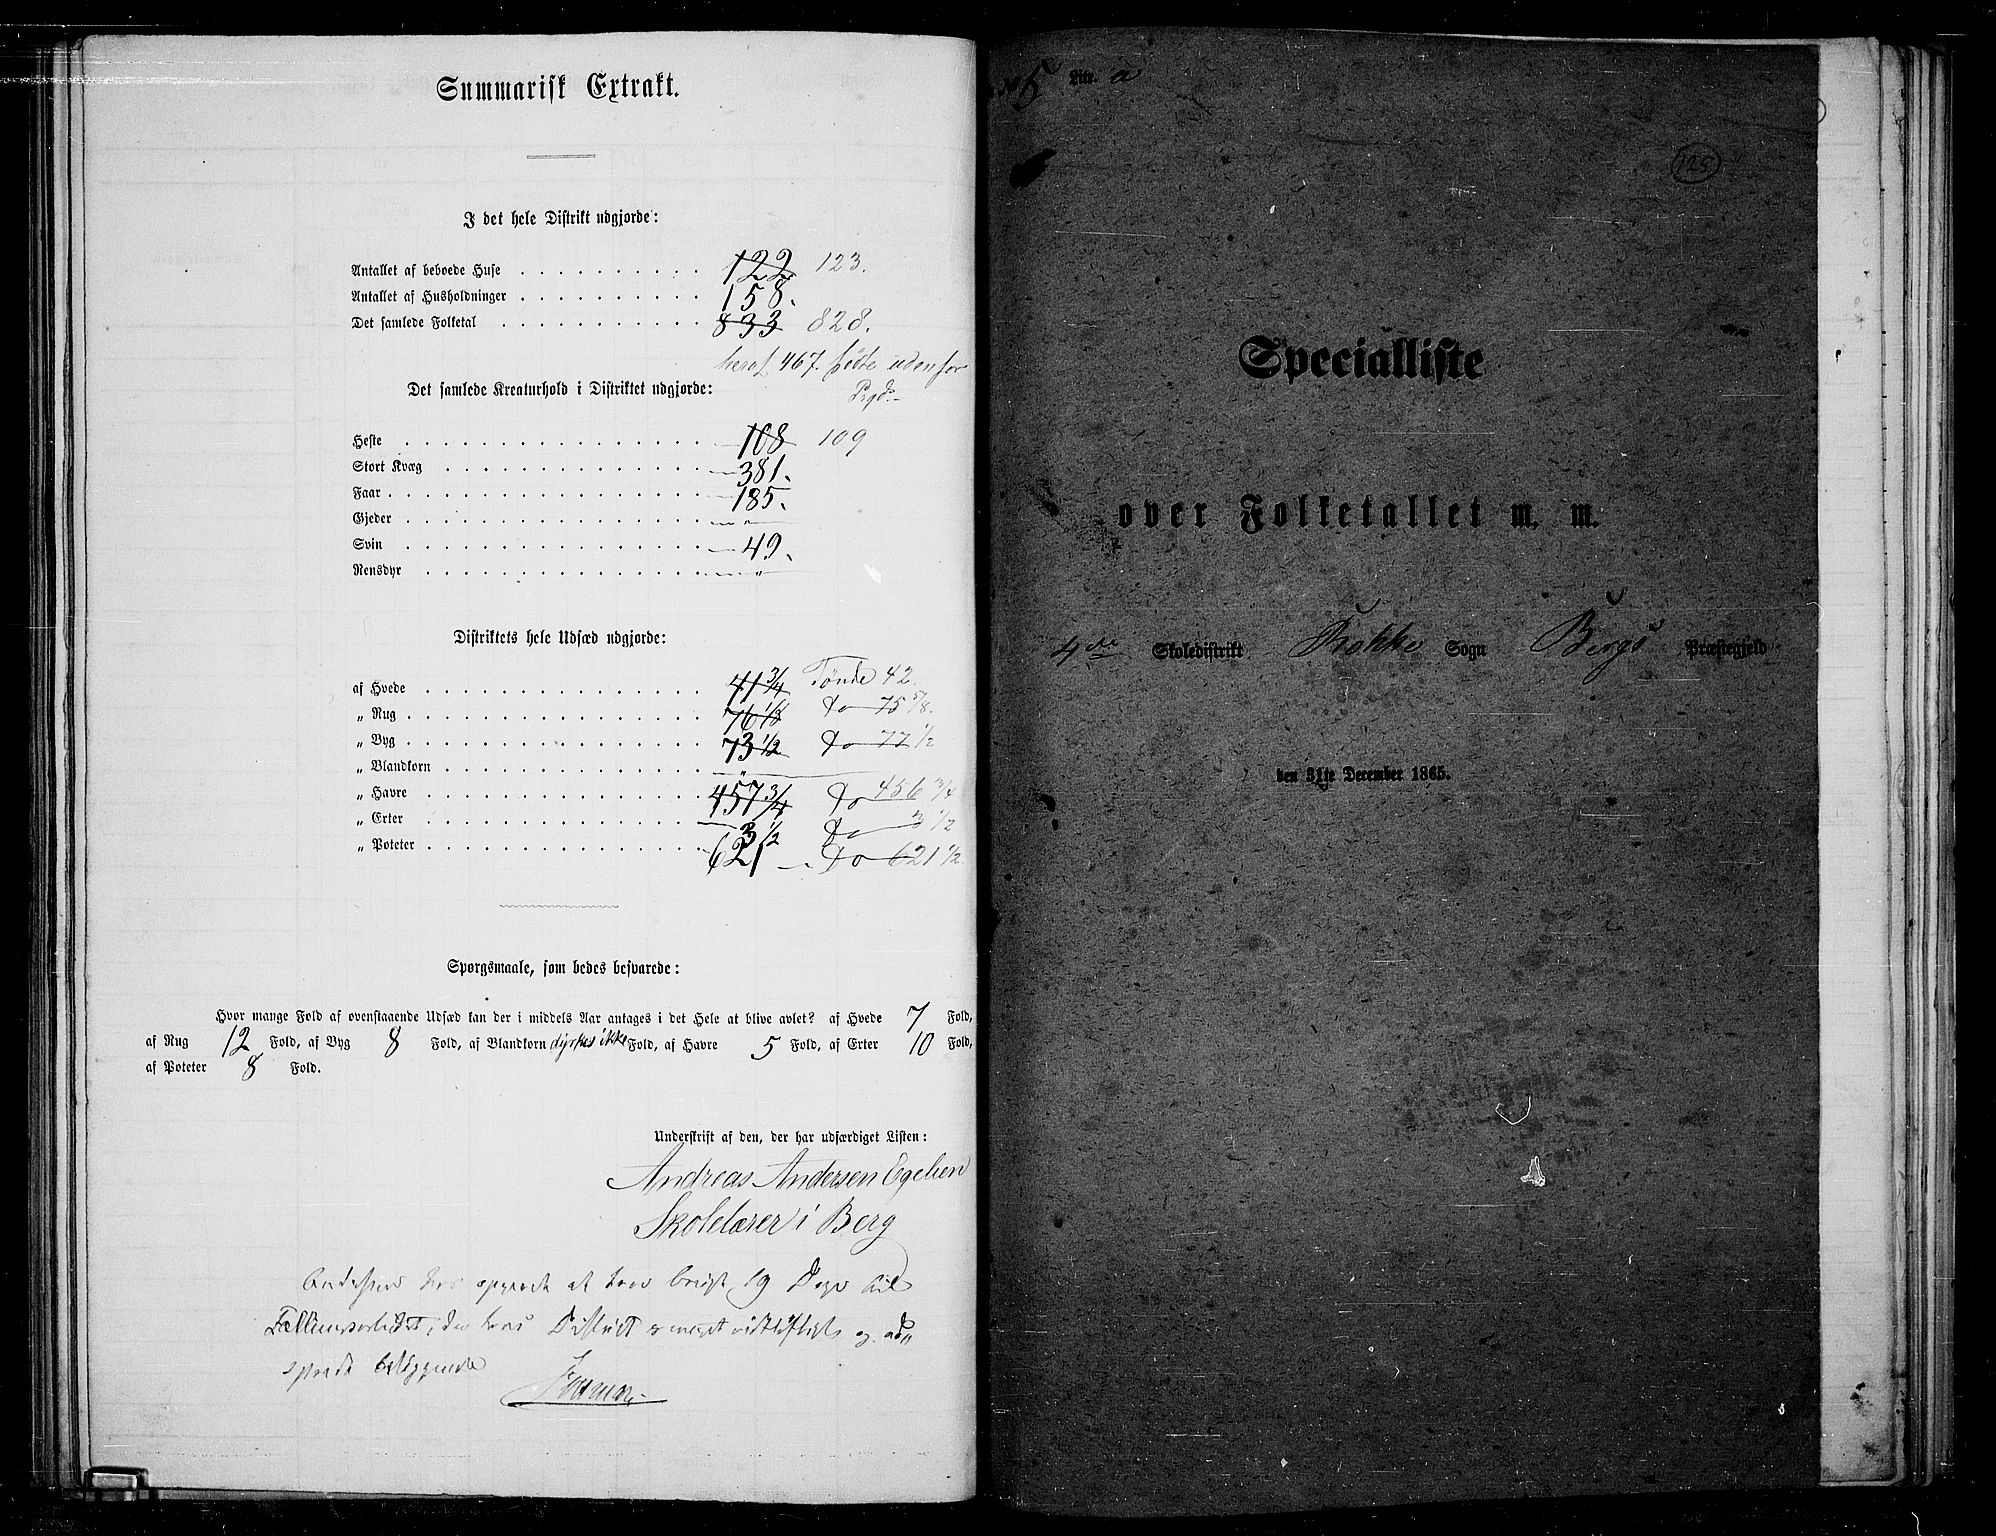 Summarisk Extrakt.
I det hele Distrikt udgjorde:
Antallet af beboede Huse . . . . . . . . . . 122 123.
Antallet af Husholdninger . . . . . . . . . . 158.
Det samlede Folketal . . . . . . . . . . 833 828.
heraf 467. fødte udenfor
Prgd.-
Det samlede Kreaturhold i Distriktet udgjorde:
Heste . . . . . . . . . . 108 109
Stort Kvæg . . . . . . . . . . 381.
Faar . . . . . . . . . . 185.
Gjeder . . . . . . . . . . "
Svin . . . . . . . . . . 49.
Rensdyr . . . . . . . . . . "
Distriktets hele Udsæd udgjorde:
af Hvede . . . . . . . . . . 41 3/4 Tønde 42.
„ Rug . . . . . . . . . . 76 1/8 Do 75 5/8.
„ Byg . . . . . . . . . . 73 1/2 Do 77 1/2
„ Blandkorn . . . . . . . . . . "
„ Havre . . . . . . . . . . 457 3/4 Do 456 3/4
„ Erter . . . . . . . . . . 3 1/2 Do 3 1/2
„ Poteter . . . . . . . . . . 621 Do 621 1/2
Spørgsmaale, som bedes besvarede:
Hvor mange Fold af ovenstaaende Udsæd kan der i middels Aar antages i det Hele at blive avlet? af Hvede 7 Fold,
af Rug 12 Fold, af Byg 8 Fold, af Blandkorn dyrkes ikke Fold, af Havre 5 Fold, af Erter 10 Fold,
af Poteter 8 Fold.
Underskrift af den, der har udfærdiget Listen:
Andreas Andersen Egelien
Skolelærer i Berg
at have brugt 19 Dage til
Tællingsarbeidet, da hans Distrikt er meget vidtløftigt og ad-
spredt beliggende
No 5 Litr. a
125
Specialliste
over Folketallet m. m.
4de Skoledistrikt Rokke Sogn Bergs Præstegjeld
den 31te December 1865.